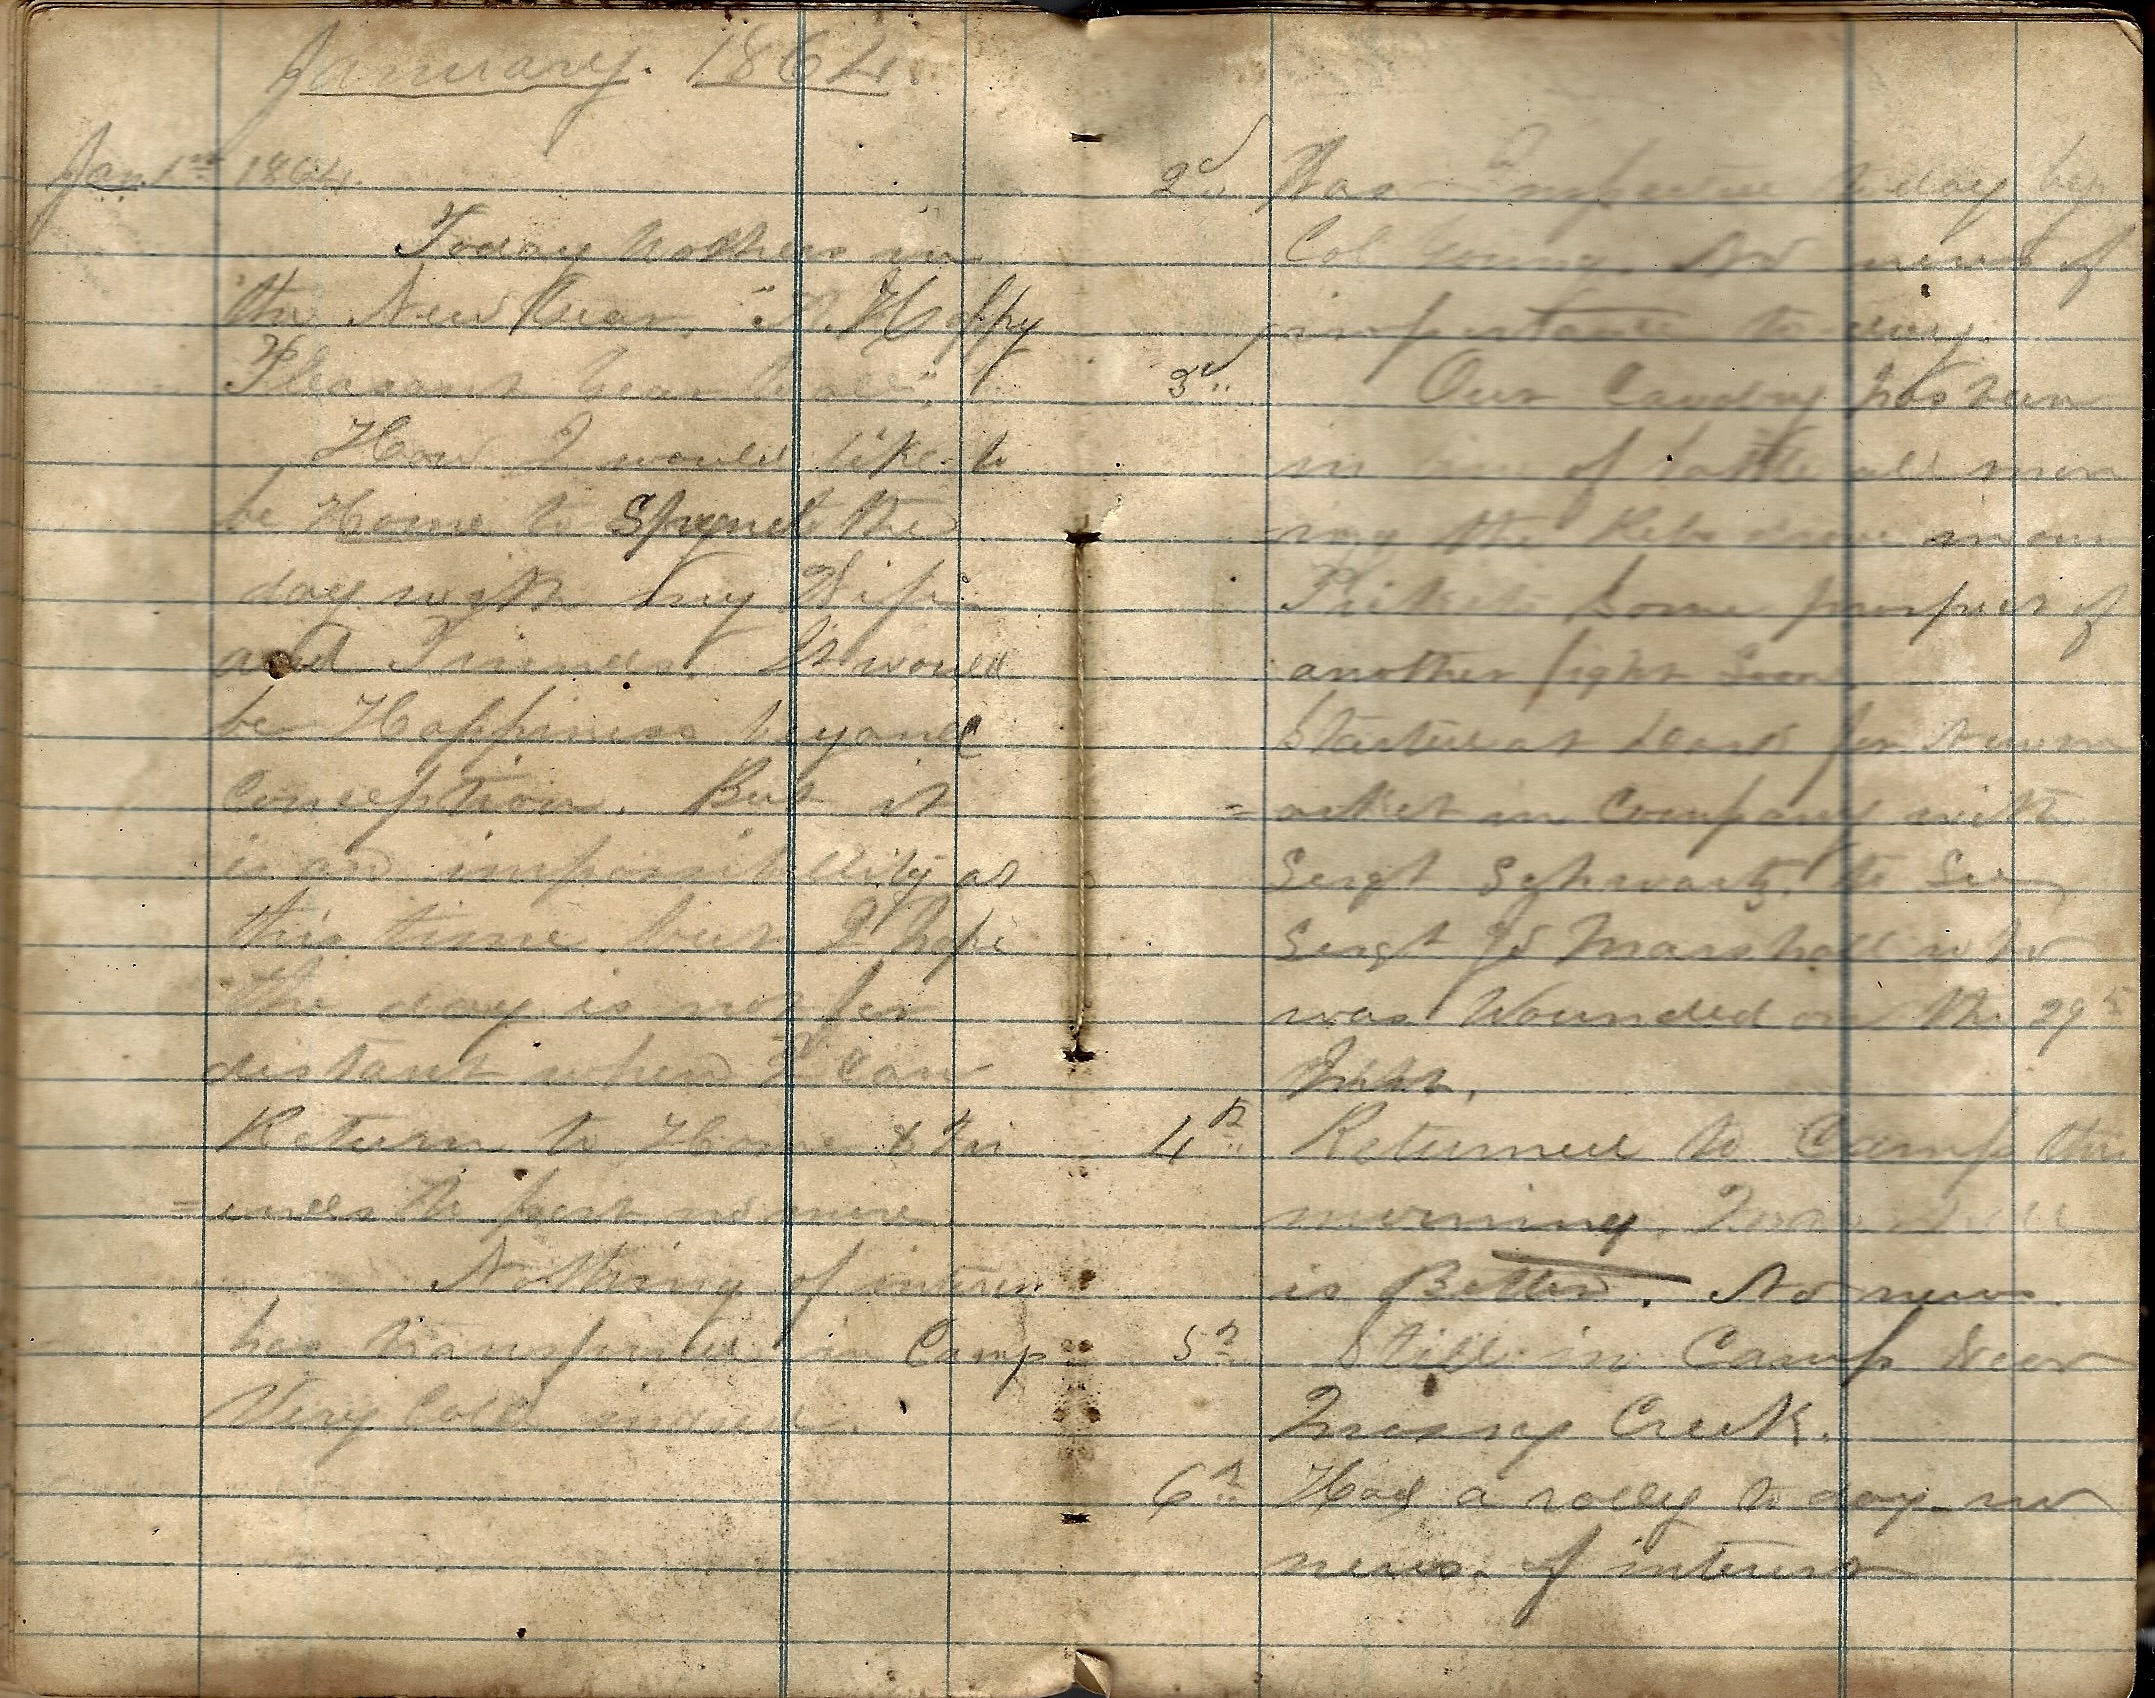 January. 1864.
Jan. 1st 1864.
Today Ushers in
the New Year. "A Happy
Pleasant Year to all".
How I would like to
be Home to Spend the
day with my Wife
and Friends. It would
be Happiness beyond
Conception. But it
is an impossibillity at
this time, but I hope
the day is not far
distant when I can
Return to Home & Fri
=ends to part no more
Nothing of interest
has transpired in Camp
Very Cold indeed.
2d Was to day by
Col Young. No news of
importance to day.
3d Our Cavalry has been
in line of battle all mor
ning the Rebs drove in our
Pickets Some prospect of
another fight Soon.
Started at Dark for
=arket in Company with
Sergt Schwartz. to See
Sergt Jd Marshall who
was Wounded on the 29th
Inst.
4th Returned to Camp this
morning.
is Better. No news.
5th Still in Camp Near
Mossy Creek.
6th Had a rally to day no
news of interest